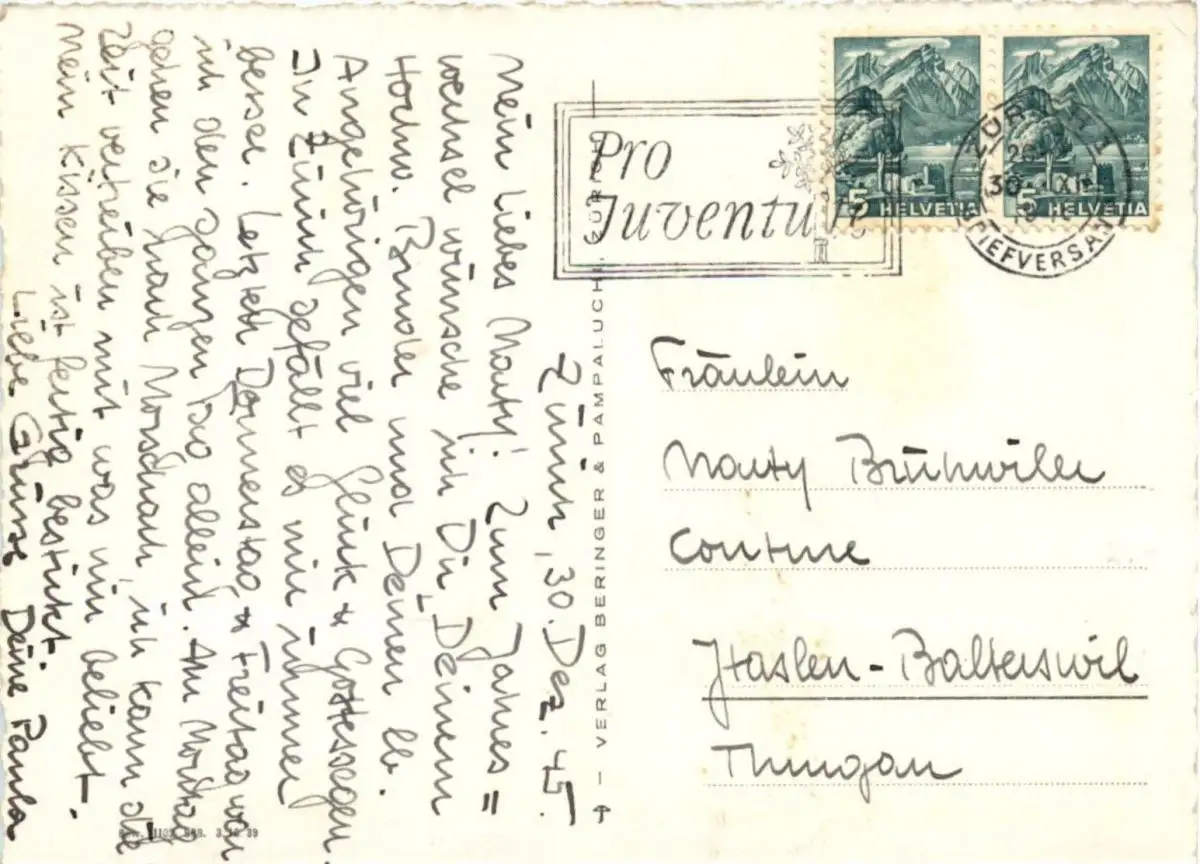 Zürich, 30. Dez. 45.
Mein liebes Marty! Zum Jahres=
wechsel wünsche ich Dir, Deinem
Hochw. Bruder und Deinen lb.
Angehörigen viel Glück & Gottessegen.
In Zürich gefällt es mir immer
besser. Letzten Donnerstag & Freitag war
ich den ganzen Tag allein. Am Montag
gehen die nach Morschach, ich kann die
Zeit vertreiben mit was mir beliebt.
Mein Kissen ist fertig bestickt.
Liebe Grüsse Deine Paula
Pro
Juventute
ZÜRICH
30. XII
BRIEFVERSAND
5 HELVETIA
5 HELVETIA
VERLAG BERINGER & PAMPALUCHI, ZÜRICH
Fräulein
Marty Brühwiler
Haslen-Balterswil
Thurgau
3.10.39